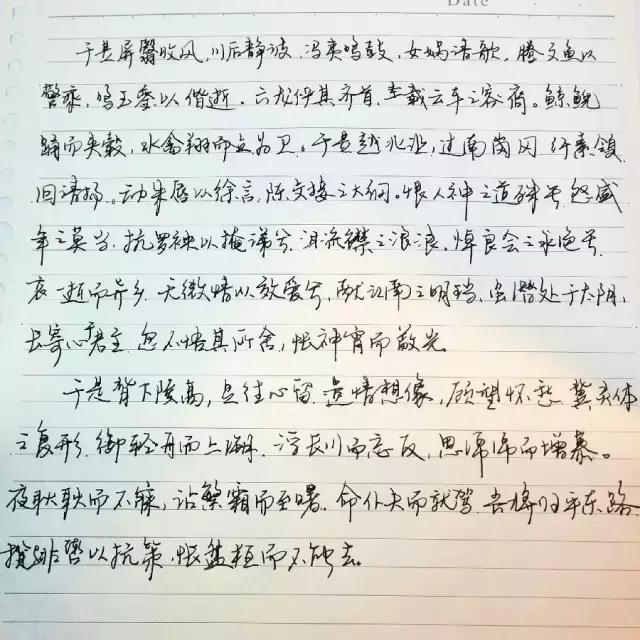 Date
于是屏翳收风,川后静波,冯夷鸣鼓,女娲清歌。腾文鱼以
警乘,鸣玉銮以偕逝。六龙俨其齐首,载云车之容裔。鲸鲵
踊而夹毂,水禽翔而为卫。于是越北沚,过南冈,纡素领,
回清扬。动朱唇以徐言,陈交接之大纲。恨人神之道殊兮,怨盛
年之莫当。抗罗袂以掩涕兮,泪流襟之浪浪。悼良会之永绝兮,
哀一逝而异乡。无微情以效爱兮,献江南之明珰。虽潜处于太阴,
长寄心君王。忽不悟其所舍,怅神宵而蔽光。
于是背下陵高,足往心留。遗情想像,顾望怀愁。冀灵体
之复形,御轻舟而上溯。浮长川而忘反,思绵绵而增慕。
夜耿耿而不寐,沾繁霜而至曙。命仆夫而就驾,吾将归乎东路。
揽騑辔以抗策,怅盘桓而不能去。